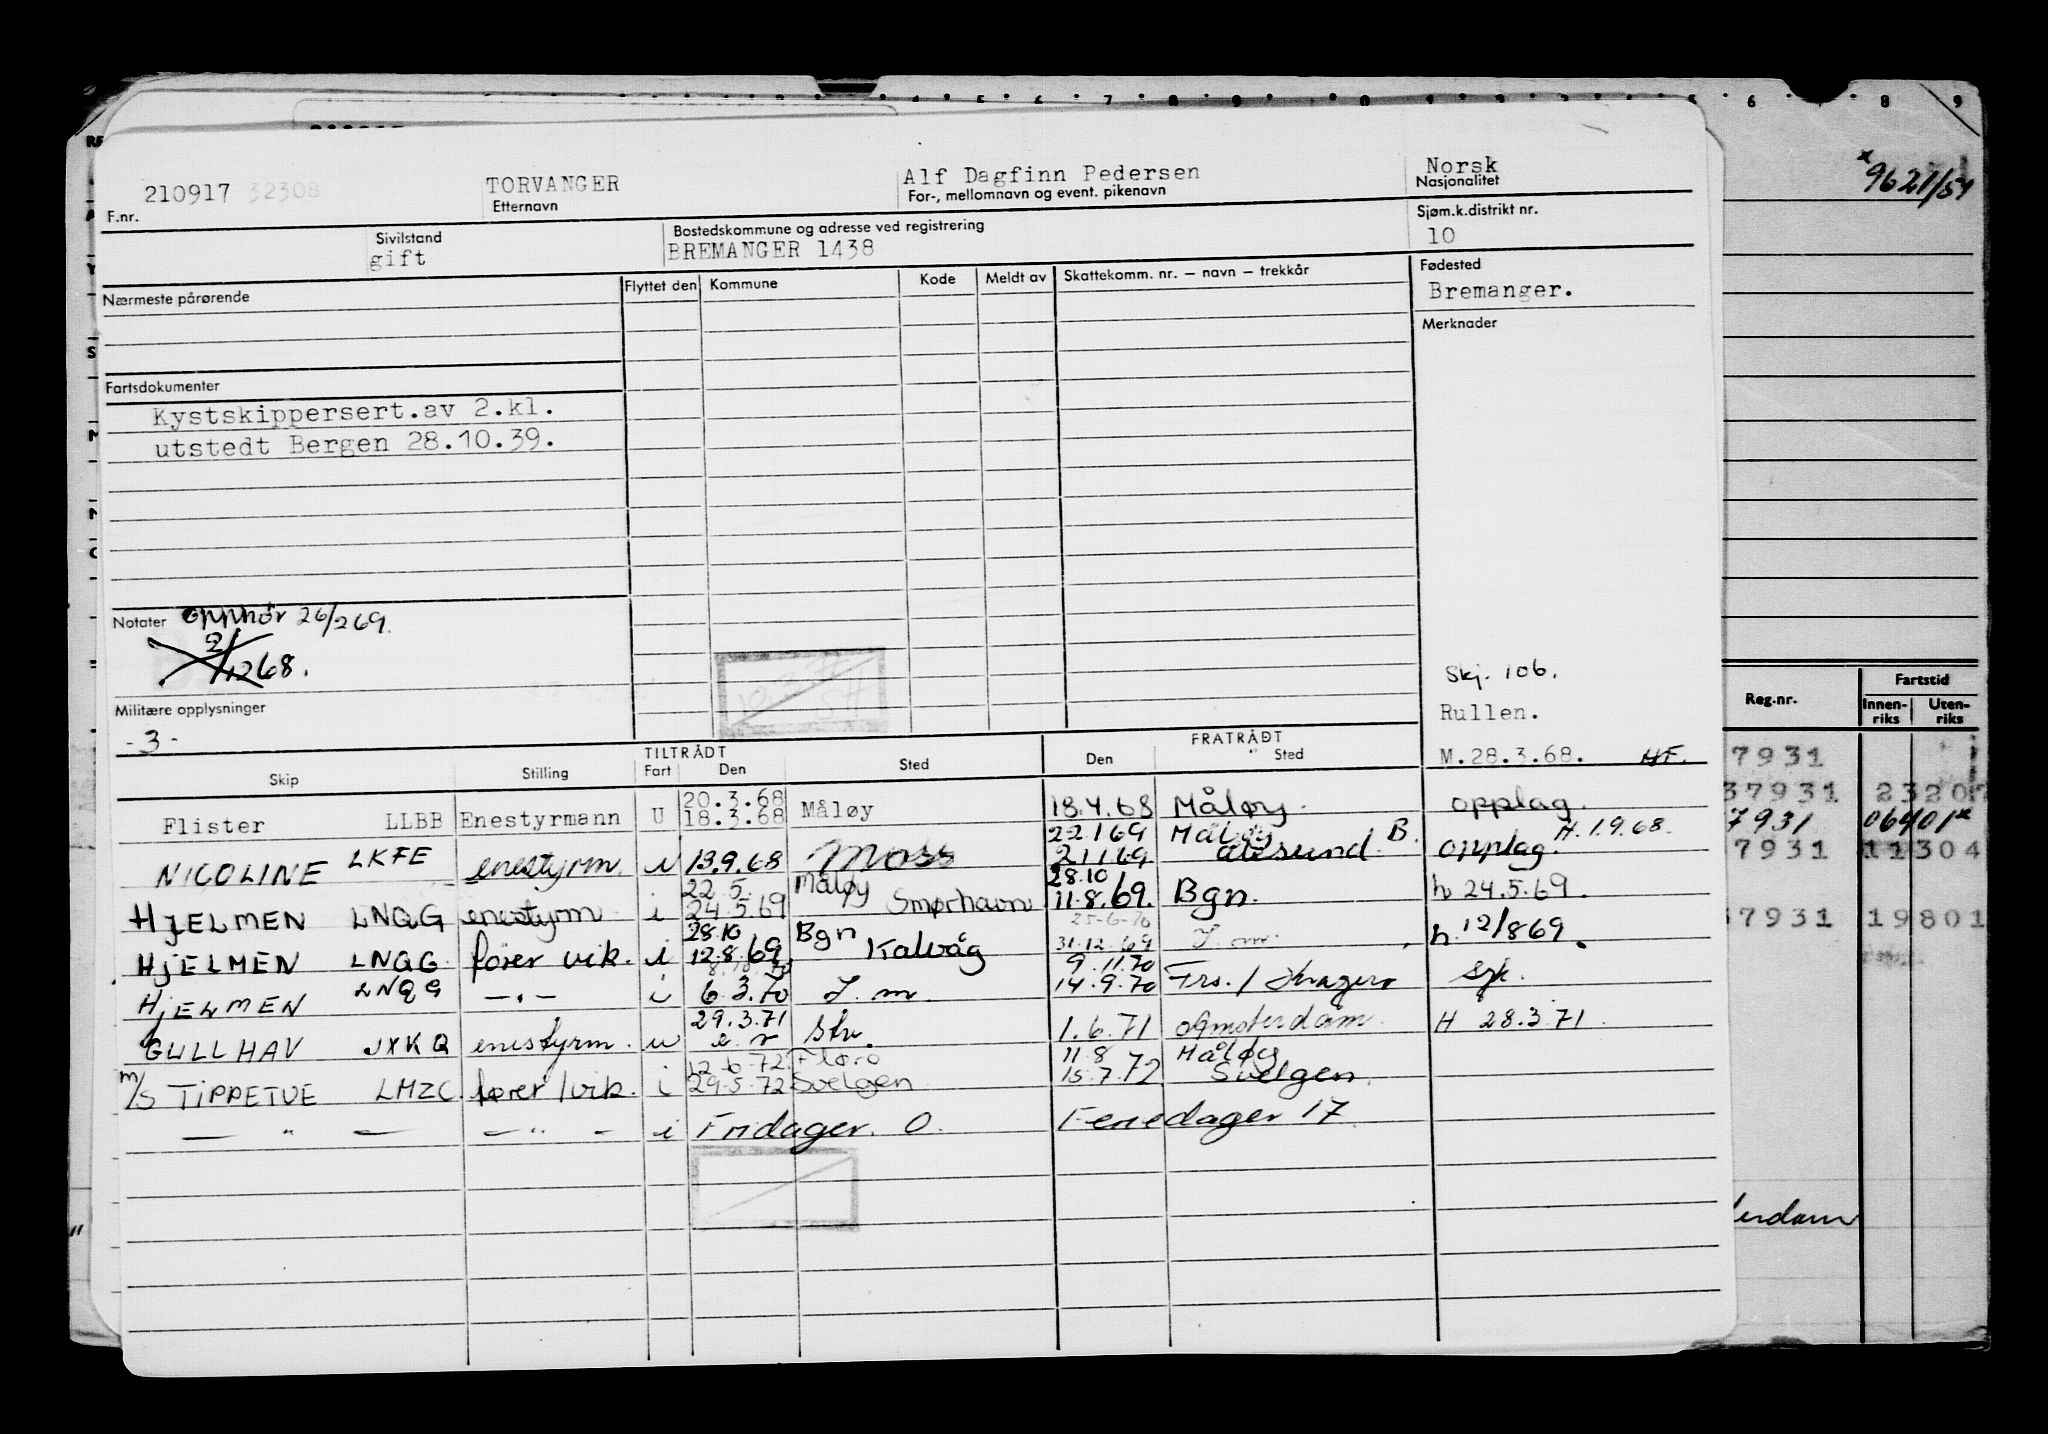 9621/54
210917 32308 TORVANGER Alf Dagfinn Pedersen Norsk
F.nr. Etternavn For-, mellomnavn og event. pikenavn Nasjonalitet
Sivilstand Bostedskommune og adresse ved registrering Sjøm.k.distrikt nr.
gift BREMANGER 1438 10
Nærmeste pårørende Flyttet den Kommune Kode Meldt av Skattekomm. nr. – navn – trekkår Fødested
Bremanger.
Merknader
Fartsdokumenter
Kystskippersert.av 2.kl.
utstedt Bergen 28.10.39.
Notater opphör 26/269.
2/1268.
Skj. 106.
Militære opplysninger Rullen.
-3-
TILTRÅDT FRATRÅDT
Skip Stilling Fart Den Sted Den Sted M.28.3.68. HF.
20.3.68
Flister LLBB Enestyrmann U 18.3.68 Måløy 18.4.68 Måløy. opplag.
22.1.69 Måløy B. H. 1.9.68.
NICOLINE LKFE enestyrm. u 13.9.68 Moss 21.1.69 Ålesund. opplag.
22.5. Måløy 28.10
HJELMEN LNQG enestyrm i 24.5.69 Smørhavn 11.8.69. Bgn. h 24.5.69.
28.10 Bgn 25-6-70
HJELMEN LNQG förer vik. i 12.8.69 Kalvåg 31.12.69 J. m. h. 12/869.
8.10.70 9.11.70
HJELMEN LNQG –"– i 6.3.70 J. m. 14.9.70 Frs. / Kragerø syk.
29.3.71
GULLHAV JXKQ enestyrm. u e. r Str. 1.6.71 Amsterdam. H 28.3.71.
12-6-72 Florø 11.8 Måløy
m/s TIPPETUE LMZC fører/vik. i 29.5.72 Svelgen 15.7.72 Svelgen.
– " – – " – i Fridager. 0. Feriedager 17.
Reg.nr. Fartstid
Innen-riks Uten-riks
7931
37931 23207
7931 06401*
7931 11304
37931 19801
erdam